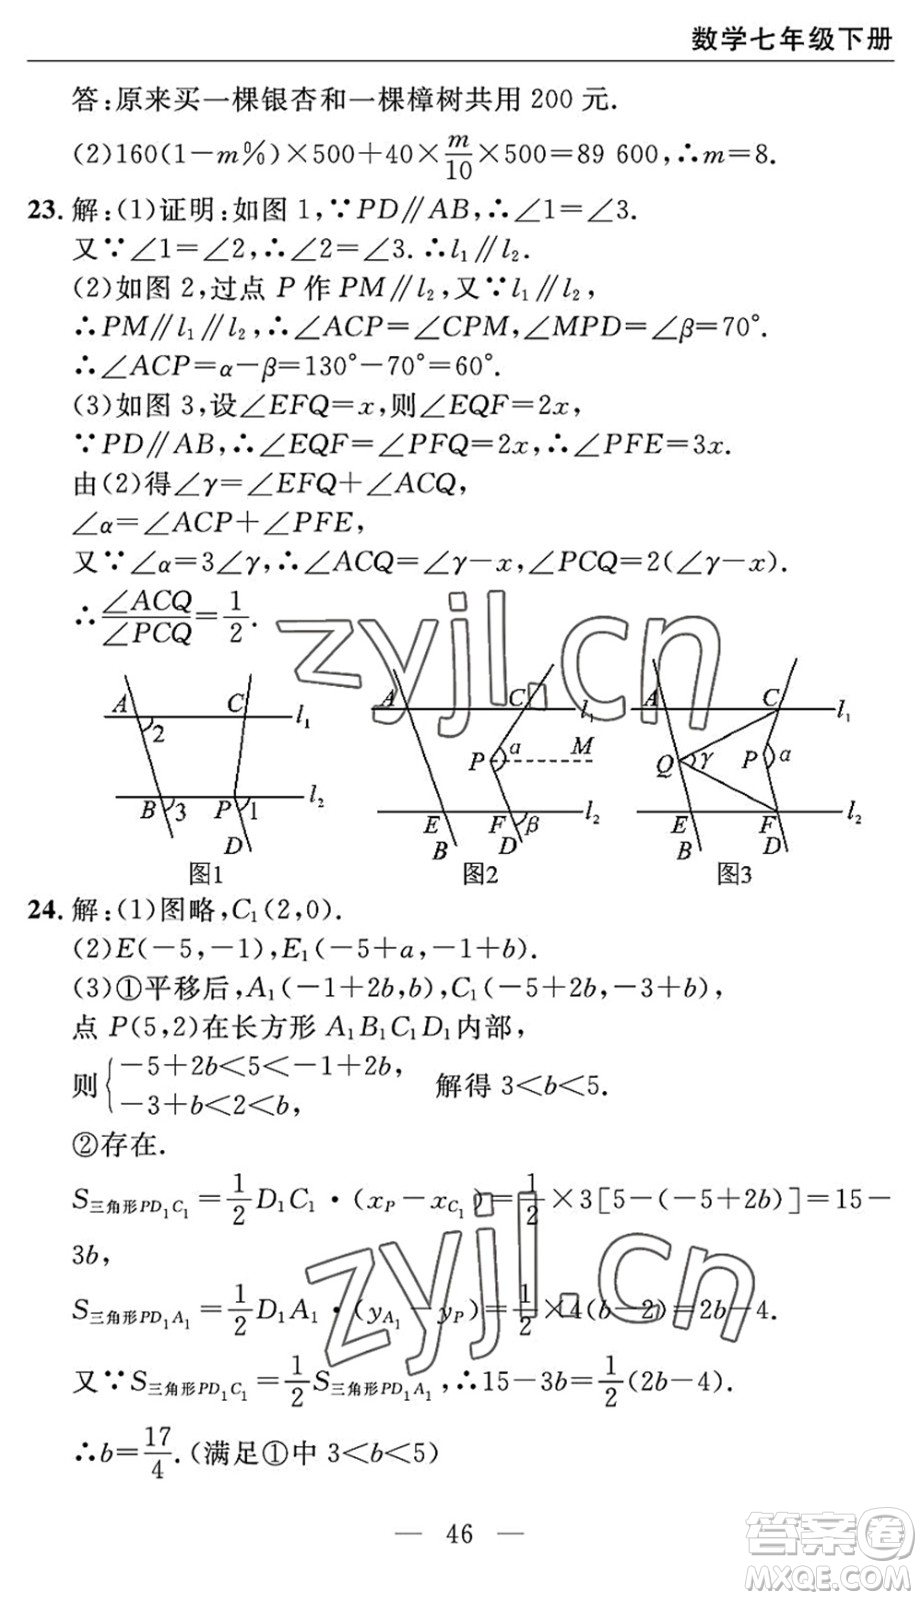 数学七年级下册
答:原来买一棵银杏和一棵樟树共用 200 元.
(2)160(1-m%)×500+40×m/10×500=89 600,∴m=8.
23. 解:(1)证明:如图 1,∵PD∥AB,∴∠1=∠3.
又∵∠1=∠2,∴∠2=∠3.∴l₁∥l₂.
(2)如图 2,过点 P 作 PM∥l₂,又∵l₁∥l₂,
∴PM∥l₁∥l₂,∴∠ACP=∠CPM,∠MPD=∠β=70°.
∴∠ACP=α-β=130°-70°=60°.
(3)如图 3,设∠EFQ=x,则∠EQF=2x,
∵PD∥AB,∴∠EQF=∠PFQ=2x,∴∠PFE=3x.
由(2)得∠γ=∠EFQ+∠ACQ,
∠α=∠ACP+∠PFE,
又∵∠α=3∠γ,∴∠ACQ=∠γ-x,∠PCQ=2(∠γ-x).
∴∠ACQ/∠PCQ=1/2.
zyjl.cn
A C l₁ 2
B 3 P 1 l₂
D
图1
A C l₁
P α M
E F β l₂
B D
图2
A C l₁
Q γ P α
E F l₂
B D
图3
24. 解:(1)图略,C₁(2,0).
(2)E(-5,-1),E₁(-5+a,-1+b).
(3)①平移后,A₁(-1+2b,b),C₁(-5+2b,-3+b),
点 P(5,2)在长方形 A₁B₁C₁D₁内部,
则{-5+2b<5<-1+2b,
-3+b<2<b, 解得 3<b<5.
②存在.
S三角形PD₁C₁=1/2D₁C₁·(xP-xC₁)=1/2×3[5-(-5+2b)]=15-
3b,
S三角形PD₁A₁=1/2D₁A₁·(yA₁-yP)=1/2×4(b-2)=2b-4.
zyjl.cn
又∵S三角形PD₁C₁=1/2S三角形PD₁A₁,∴15-3b=1/2(2b-4).
∴b=17/4.(满足①中 3<b<5)
— 46 —
答案圈
MXQE.COM